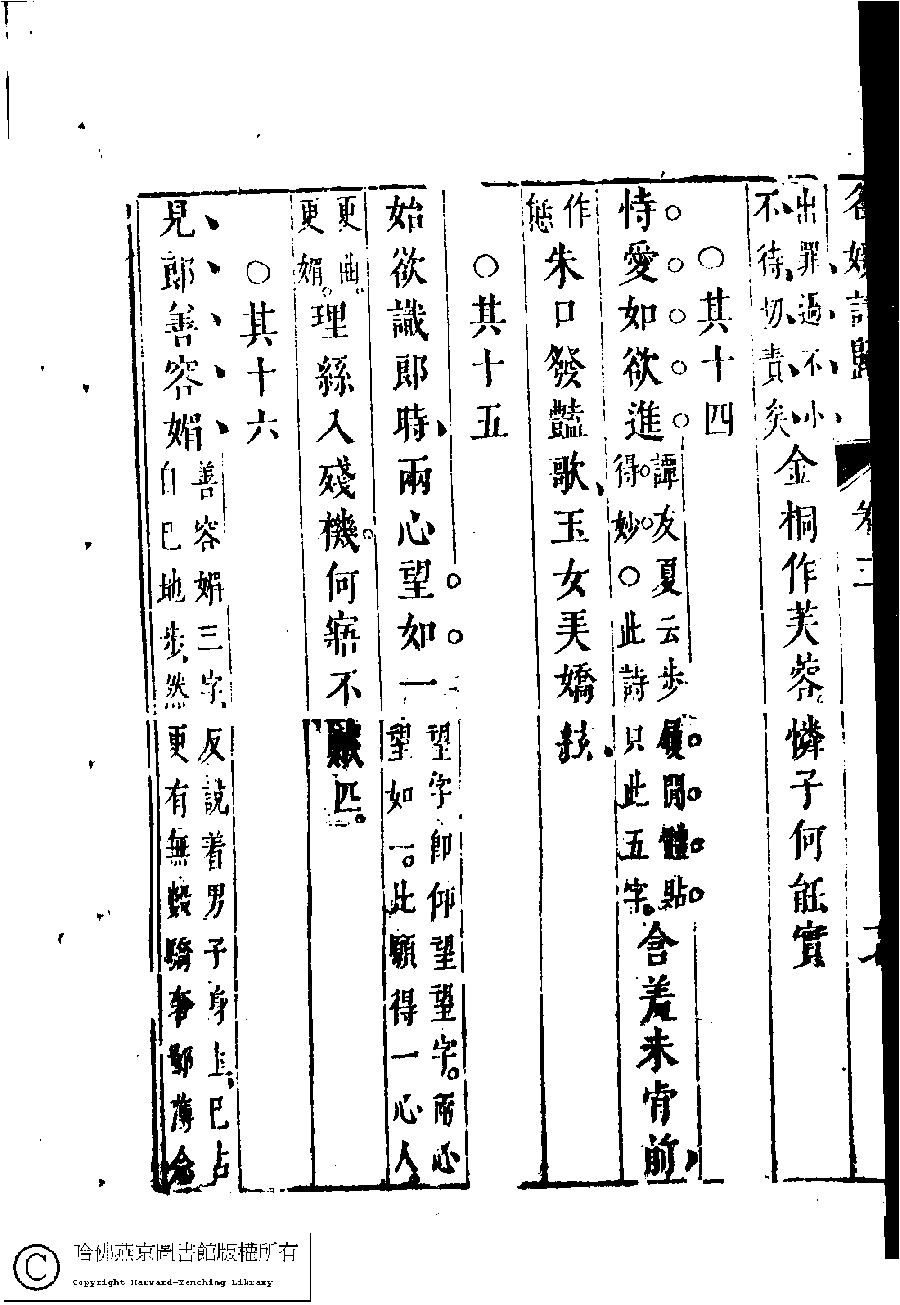 名媛詩歸 卷
出罪過不小
不待切責矣
金桐作芙蓉憐子何能實
○其十四
恃愛如欲進
譚友夏云步履閒體點
得妙○此詩只此五字
含羞未肯前
作
態
朱口發豔歌玉女美嬌絃
○其十五
始欲識郎時兩心望如一
望字即仰望望字兩心
望如一此願得一心人
更曲
更媚
理絲入殘機何寤不匹
○其十六
見郎善容媚
善容媚三字反說着男子身上已占
自己地步然更有無數驕奢鄙薄念
哈佛燕京圖書館版權所有
Copyright Harvard-Yenching Library